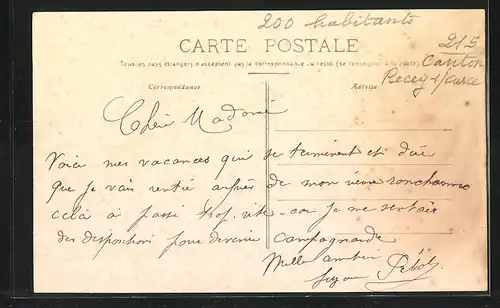 200 habitants
215
Canton
Recey s/ource
CARTE POSTALE
Tous les pays étrangers n'acceptent pas la correspondance au recto (se renseigner à la poste)
Correspondance
Adresse
Chère Madame
Voici mes vacances qui se terminent et dire
que je vais rentrer auprès de mon vieux
celà a passé trop vite car je me sentais
des dispositions pour devenir campagnarde
Mille amitiés